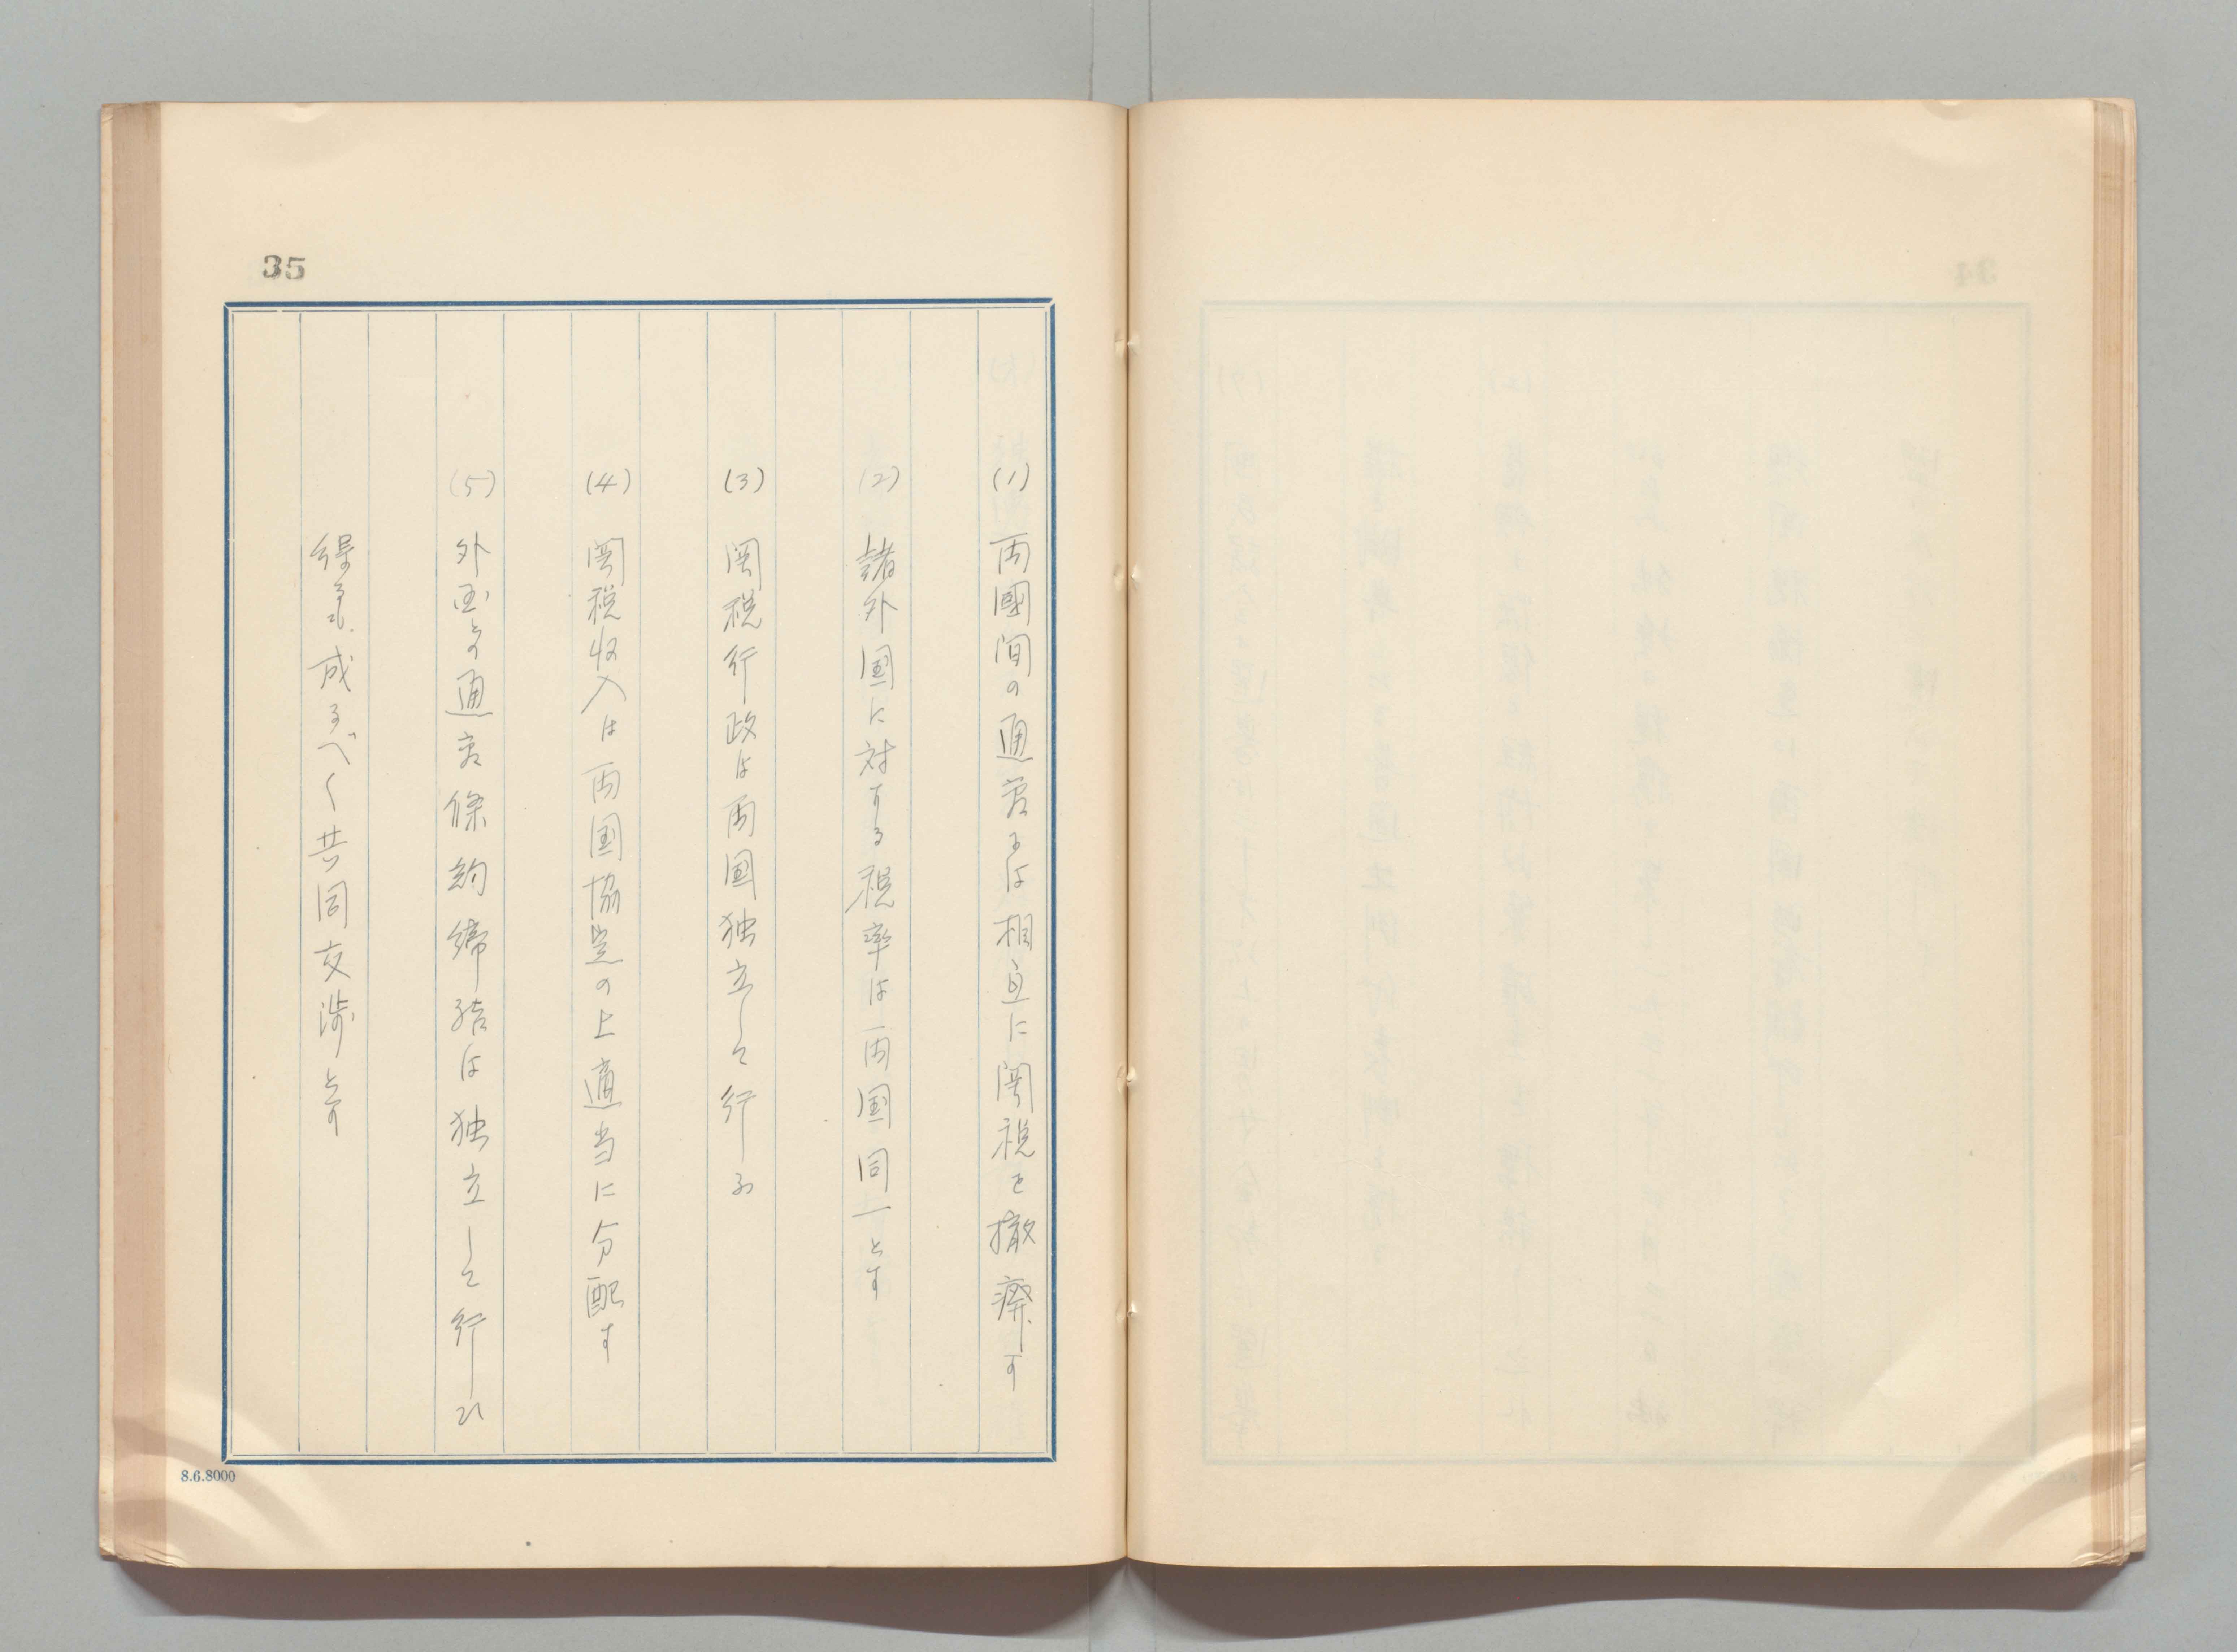 35
(1) 両國間の通商には相互に関税を撤廃す
(2) 諸外国に対する税率は両国同一とす
(3) 関税行政は両国独立して行ふ
(4) 関税収入は両国協定の上適当に分配す
(5) 外国との通商條約締結は独立して行ひ
得るも、成るべく共同交渉とす
8.6.8000